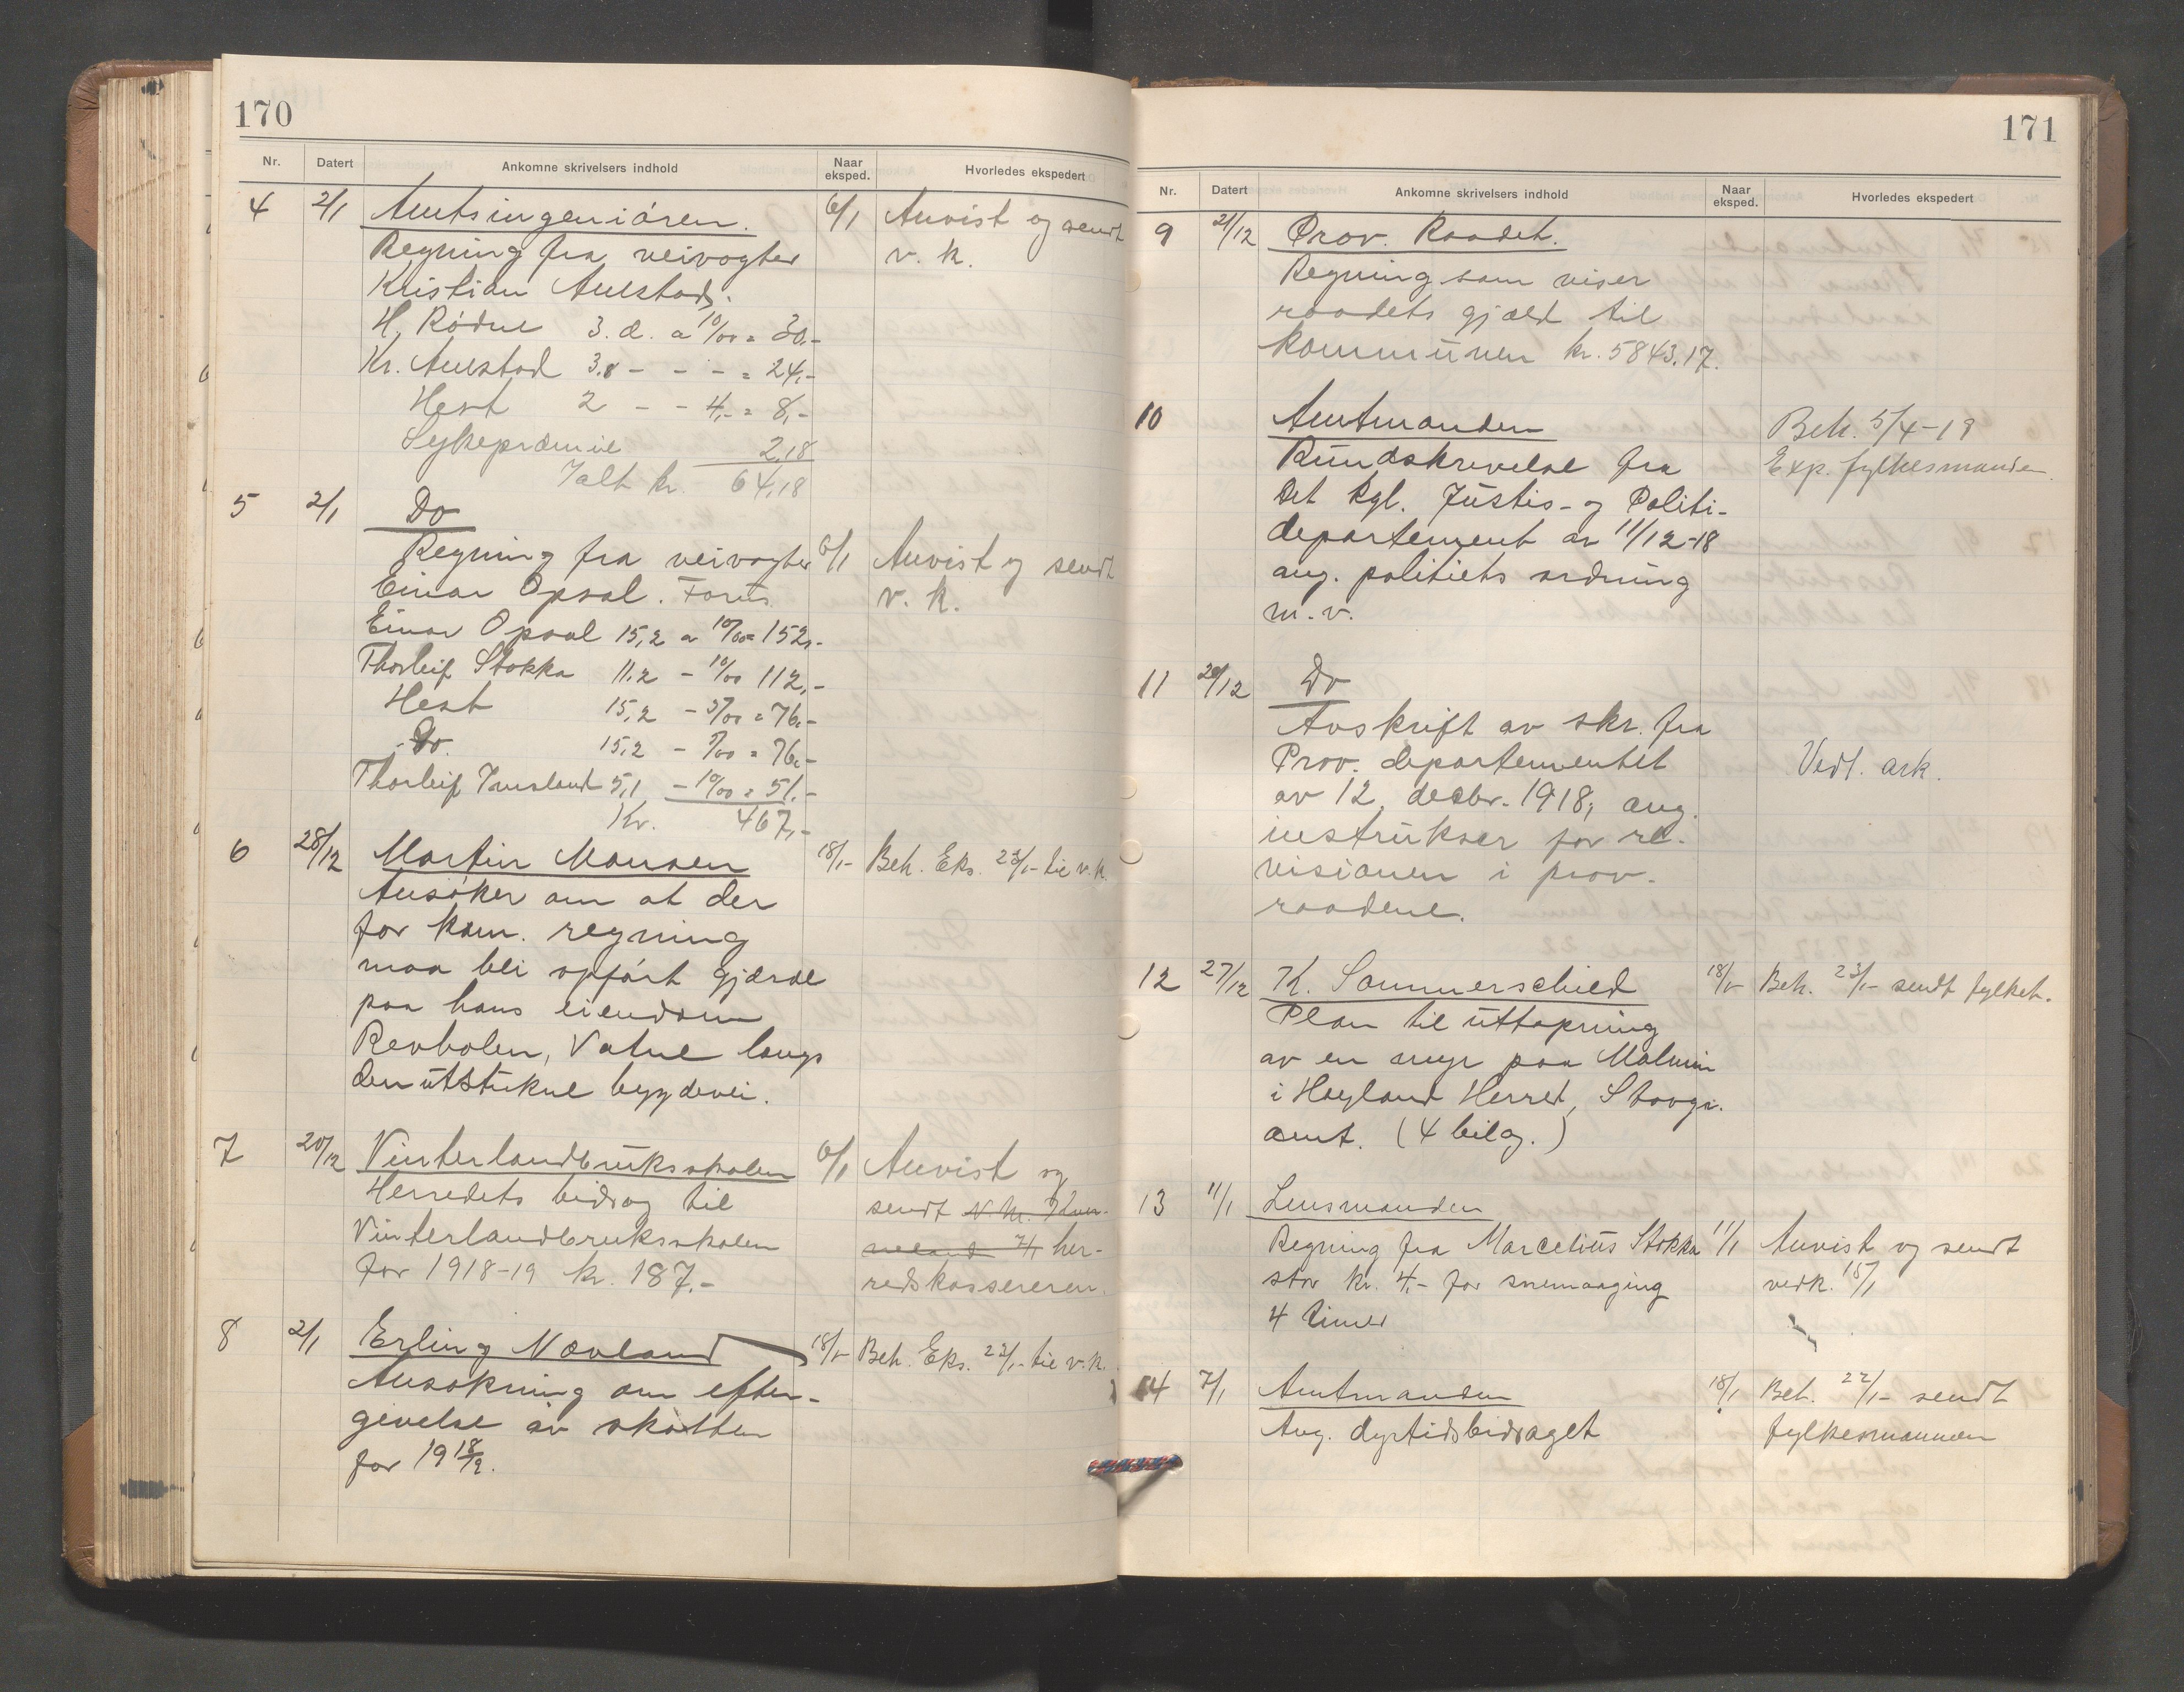 170
Nr. Datert Ankomne skrivelsers indhold Naar eksped. Hvorledes ekspedert
4 2/1 Amtsingeniören. 6/1 Anvist og sendt
Regning fra veivogter v. k.
Kristian Aulstad.
H. Rödne 3. d. a 10/00 = 30,-
Kr. Aulstad 3. " - - - = 24,-
Hest 2 - - 4,- = 8,-
Sykepræmie 2,18
Ialt kr. 64,18
5 2/1 Do
Regning fra veivogter 6/1 Anvist og sendt
Einar Opsal. Forus. v. k.
Einar Opsal 15,2 a 10/00 = 152,-
Thorleif Stokka 11.2 - 10/00 112,-
Hest 15,2 - 5/00 = 76,-
Do. 15,2 - 5/00 = 76,-
Thorleif 5,1 - 10/00 = 51,-
Kr. 467,-
6 28/12 Martin Monsen 18/1- Beh. Eks. 23/1- til v.k.
Ansöker om at der
for kom. regning
maa bli opfört gjærde
paa hans eiendom
Revholen, Vatne langs
den utstukne bygdevei.
7 20/12 Vinterlandbruksskolen 6/1 Anvist og
Herredets bidrag til sendt
Vinterlandbruksskolen 7/1 her-
for 1918-19 kr. 187.- redskassereren.
8 2/1 Erling Nævland 18/1- Beh. Eks. 23/1- til v.k.
Ansökning om efter-
givelse av skatten
for 1918/19.
171
Nr. Datert Ankomne skrivelsers indhold Naar eksped. Hvorledes ekspedert
9 21/12 Prov. Raadet.
Regning som viser
raadets gjæld til
kommunen kr. 5843.17.
10 Amtmanden Beh. 5/4-19
Rundskrivelse fra Exp. fylkesmanden
Det kgl. Justis- og Politi-
departement av 11/12-18
ang. politiets ordning
m.v.
11 20/12 Do
Avskrift av skr. fra
Prov. departementet Vedl. ark.
av 12. decbr. 1918, ang.
instrukser for re-
visionen i prov-
raadene.
12 27/12 K. Sommerschield 18/1- Beh. 23/1- sendt fylket.
Plan til uttapning
av en myr paa Malmin
i Høyland Herred, Stavgr.
amt. (4 bilag.)
13 11/1 Lensmanden
Regning fra Marcelius Stokka 11/1 Anvist og sendt
stor kr. 4,- for snemaaging vedk. 15/1
4 timer
14 7/1 Amtmanden 18/1 Beh. 22/1- sendt
Ang. dyrtidsbidraget fylkesmannen